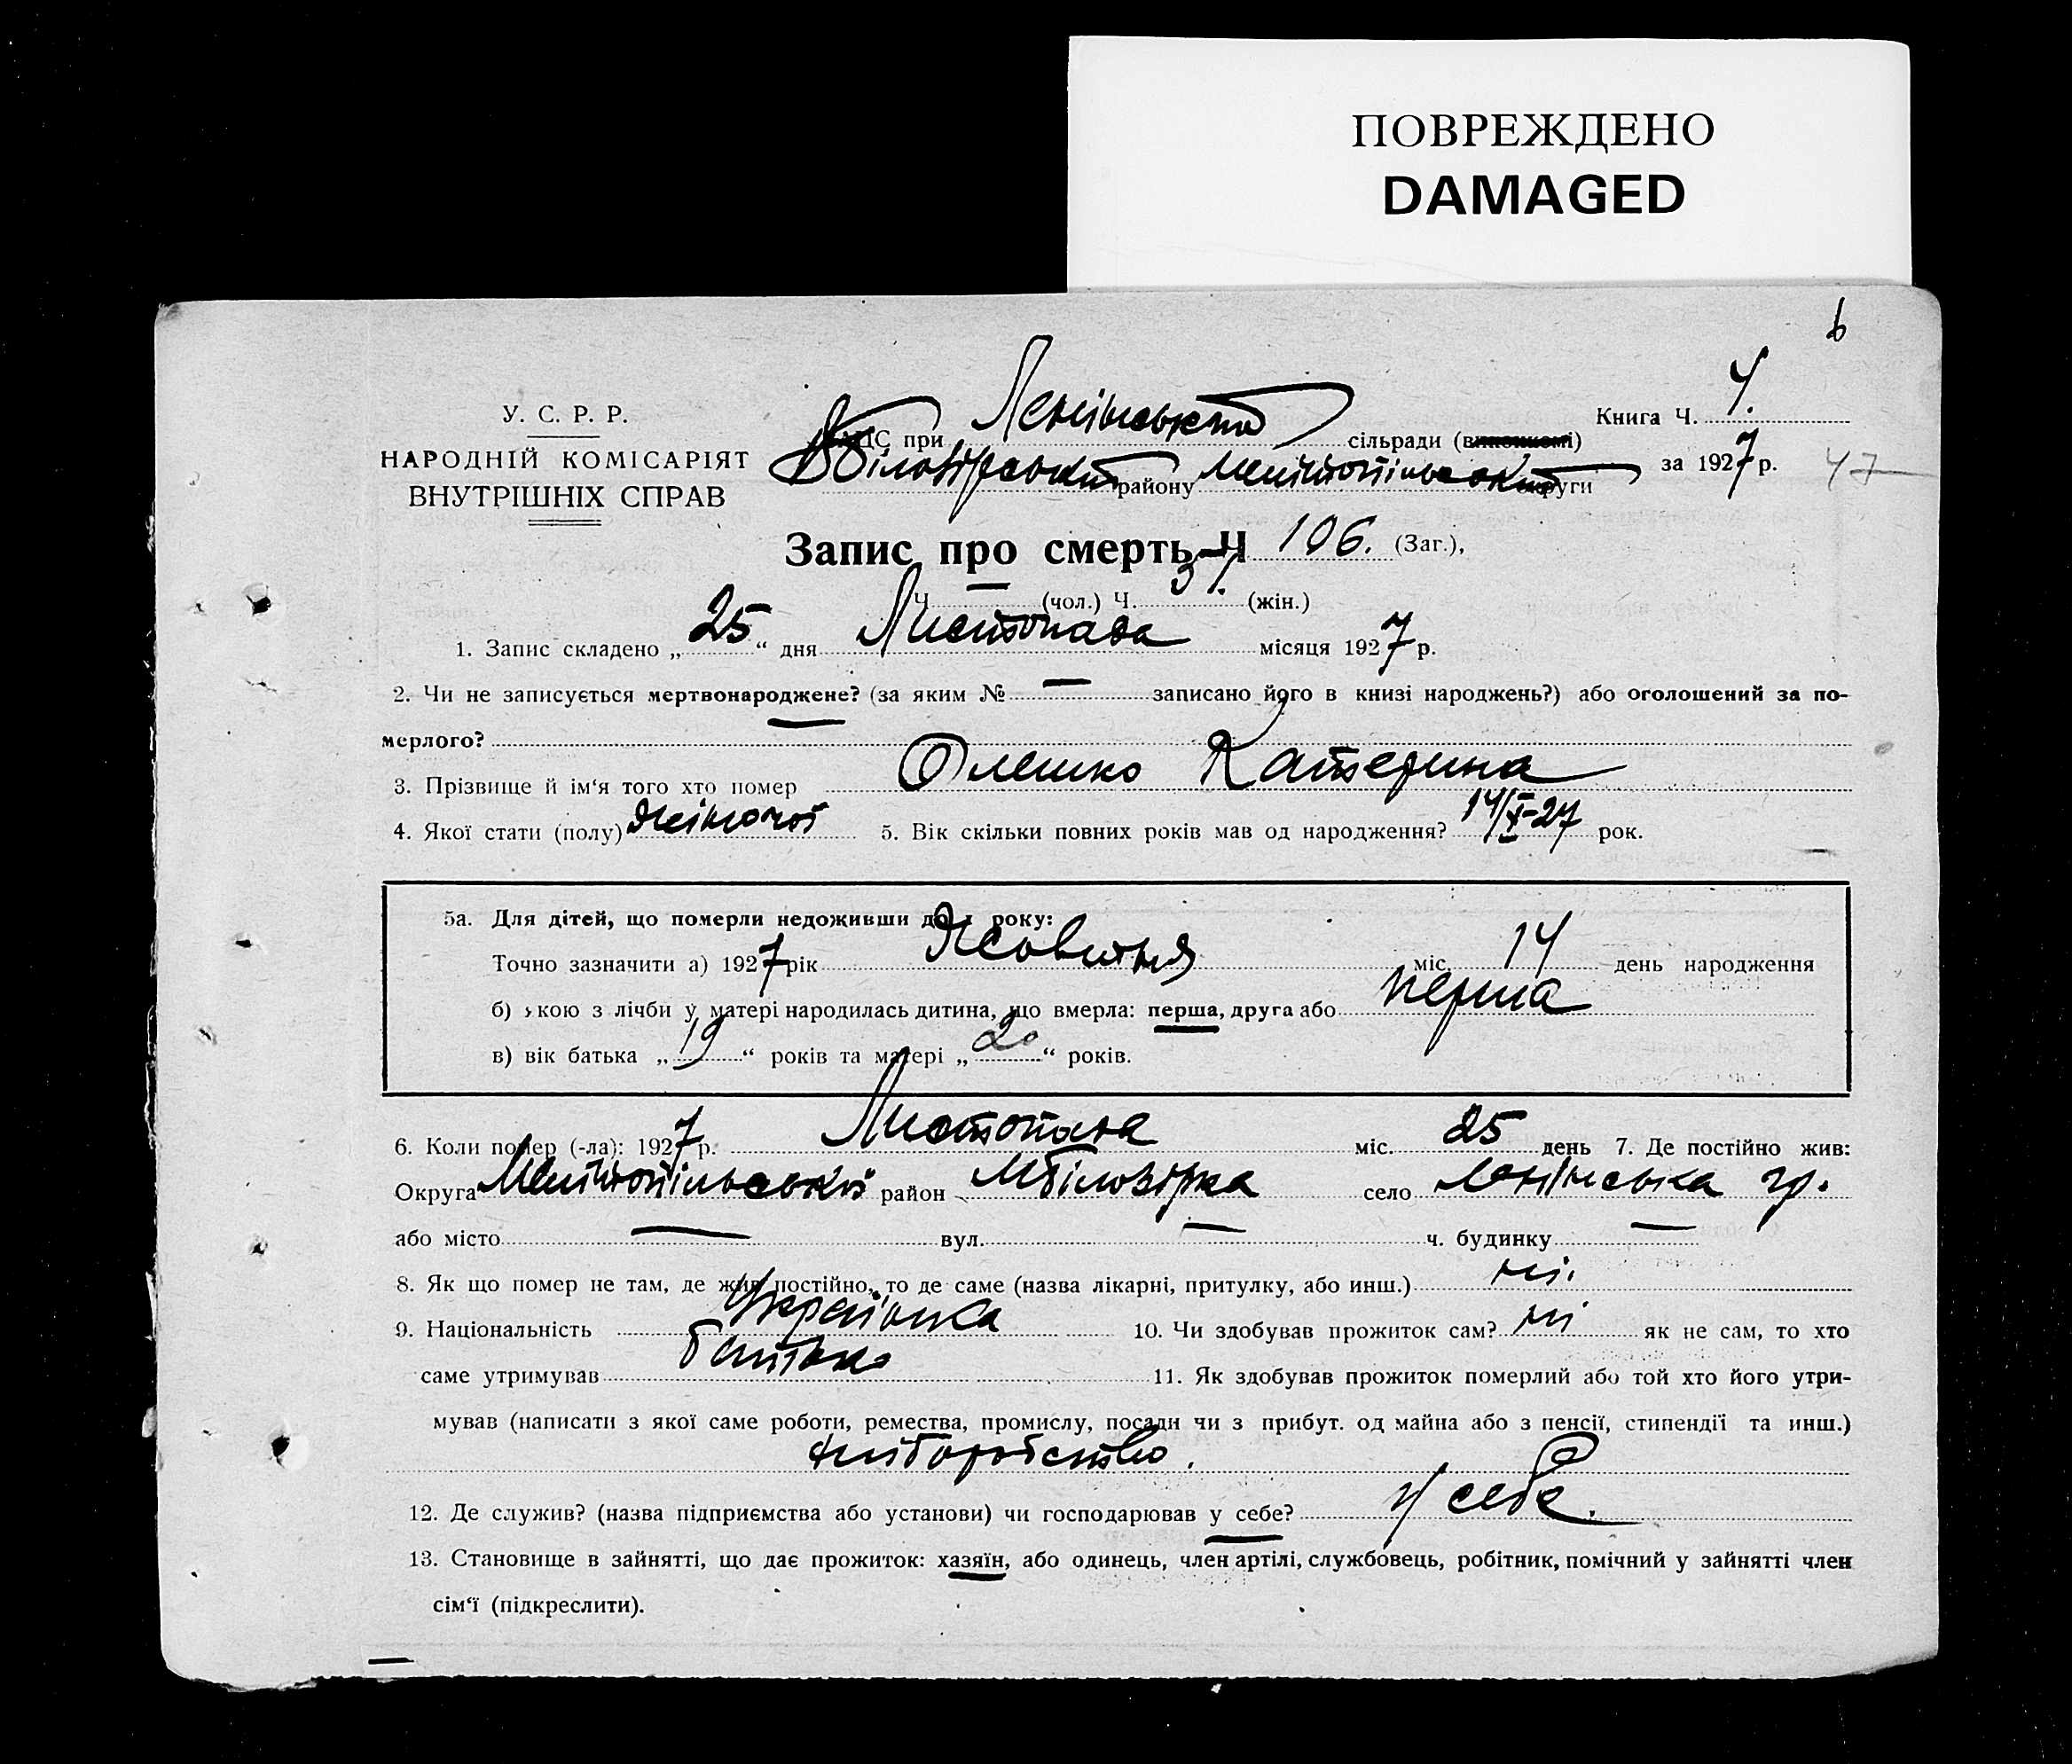 ПОВРЕЖДЕНО
DAMAGED
6
У. С. Р. Р.
НАРОДНІЙ КОМІСАРІЯТ
ВНУТРІШНІХ СПРАВ
при Ленінській сільради (виконкомі)
району Мелітопільської округи
Книга Ч. 4.
за 1927 р. 47
Запис про смерть Ч 106. (Заг.),
Ч. — (чол.) Ч. 51. (жін.)
1. Запис складено „ 25 “ дня Листопада місяця 1927 р.
2. Чи не записується мертвонароджене? (за яким № — записано його в книзі народжень?) або оголошений за по-
мерлого?
3. Прізвище й ім‘я того хто помер Олешко Катерина
4. Якої стати (полу) жіночої 5. Вік скільки повних років мав од народження? 14/X-27 рок.
5а. Для дітей, що померли недоживши до 1 року:
Точно зазначити а) 1927 рік Жовтня міс. 14 день народження
б) якою з лічби у матері народилась дитина, що вмерла: перша, друга або перша
в) вік батька „ 19 “ років та матері „ 20 “ років.
6. Коли помер (-ла): 1927 р. Листопада міс. 25 день 7. Де постійно жив:
Округа Мелітопільської район М Білозірка село Ленінська гр.
або місто — вул. — ч. будинку —
8. Як що помер не там, де жив постійно, то де саме (назва лікарні, притулку, або инш.) ні.
9. Національність Українка 10. Чи здобував прожиток сам? ні як не сам, то хто
саме утримував батько 11. Як здобував прожиток померлий або той хто його утри-
мував (написати з якої саме роботи, ремества, промислу, посади чи з прибут. од майна або з пенсії, стипендії та инш.)
хліборобство.
12. Де служив? (назва підприємства або установи) чи господарював у себе? у себе.
13. Становище в зайнятті, що дає прожиток: хазяїн, або одинець, член артілі, службовець, робітник, помічний у зайнятті член
сім‘ї (підкреслити).